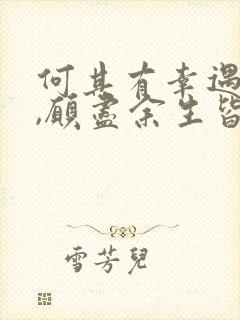 何其有幸遇
,願盡余生皆
雪芳兒